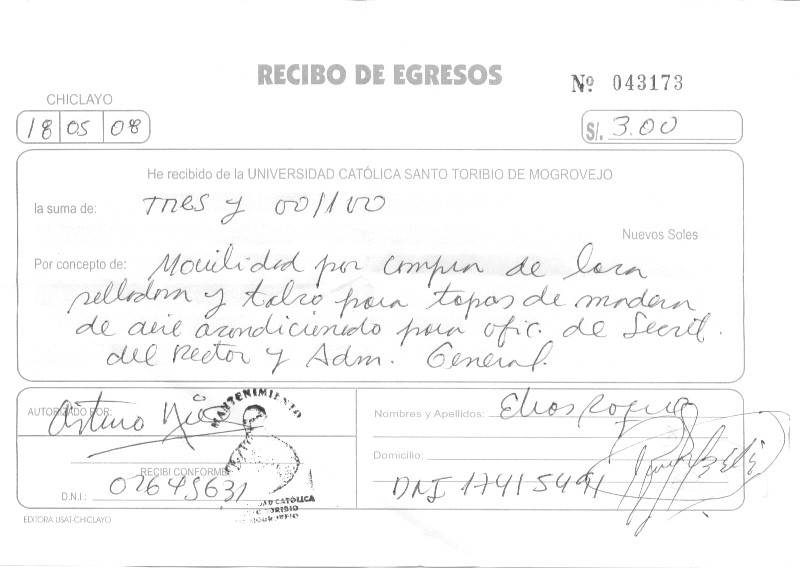 RECIBO DE EGRESOS
Nº 043173
CHICLAYO
18 05 08
S/. 3.00
He recibido de la UNIVERSIDAD CATÓLICA SANTO TORIBIO DE MOGROVEJO
la suma de: Tres y 00/100
Nuevos Soles
Por concepto de: Movilidad por compra de laca
selladora y talco para tapas de madera
de aire acondicionado para ofic. de Secret.
del Rector y Adm. General.
AUTORIZADO POR: Arturo
MANTENIMIENTO
RECIBI CONFORME
D.N.I.: 02645631
CATÓLICA
TORIBIO
MOGROVEJO
Nombres y Apellidos:
Domicilio:
DNI 17415491
EDITORA USAT-CHICLAYO